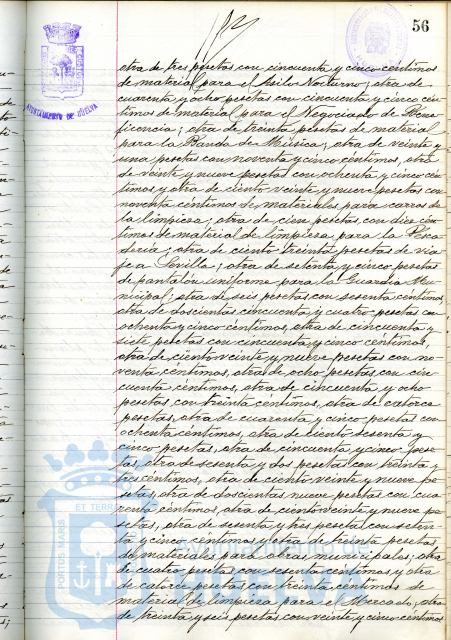 56
AYUNTAMIENTO DE HUELVA
otra de tres pesetas con cincuenta y cinco céntimos
de material para el Asilo Nocturno; otra de
cuarenta y ocho pesetas con cincuenta y cinco cén-
timos de material para el Negociado de Bene-
ficencia; otra de treinta pesetas de material
para la Banda de Música; otra de veinte y
una pesetas con noventa y cinco céntimos, otra
de veinte y nueve pesetas con ochenta y cinco cén-
timos y otra de ciento veinte y nueve pesetas con
noventa céntimos de materiales para carros de
la limpieza; otra de cien pesetas con diez cén-
timos de material de limpieza para la Pesca-
deria; otra de ciento treinta pesetas de via-
je a Sevilla; otra de setenta y cinco pesetas
de pantalón uniforme para la Guardia Mu-
nicipal; otra de seis pesetas con sesenta céntimos,
otra de doscientas cincuenta y cuatro pesetas con
ochenta y cinco céntimos, otra de cincuenta y
siete pesetas con cincuenta y cinco céntimos,
otra de ciento veinte y nueve pesetas con no-
venta céntimos, otra de ocho pesetas con cin-
cuenta céntimos, otra de cincuenta y ocho
pesetas con treinta céntimos, otra de catorce
pesetas, otra de cuarenta y cinco pesetas con
ochenta céntimos, otra de ciento sesenta y
cinco pesetas, otra de cincuenta y cinco pese-
tas, otra de sesenta y dos pesetas con treinta y
tres céntimos, otra de ciento veinte y nueve pe-
setas, otra de doscientas nueve pesetas con cua-
renta céntimos, otra de ciento veinte y nueve pe-
setas, otra de setenta y tres pesetas con seten-
ta y cinco céntimos y otra de treinta pesetas
de materiales para obras municipales; otra
de cuatro pesetas con sesenta céntimos y otra
de catorce pesetas con treinta céntimos de
material de limpieza para el Mercado; otra
de treinta y seis pesetas con veinte y cinco céntimos
PORTUS MARIS
ET TERRAE